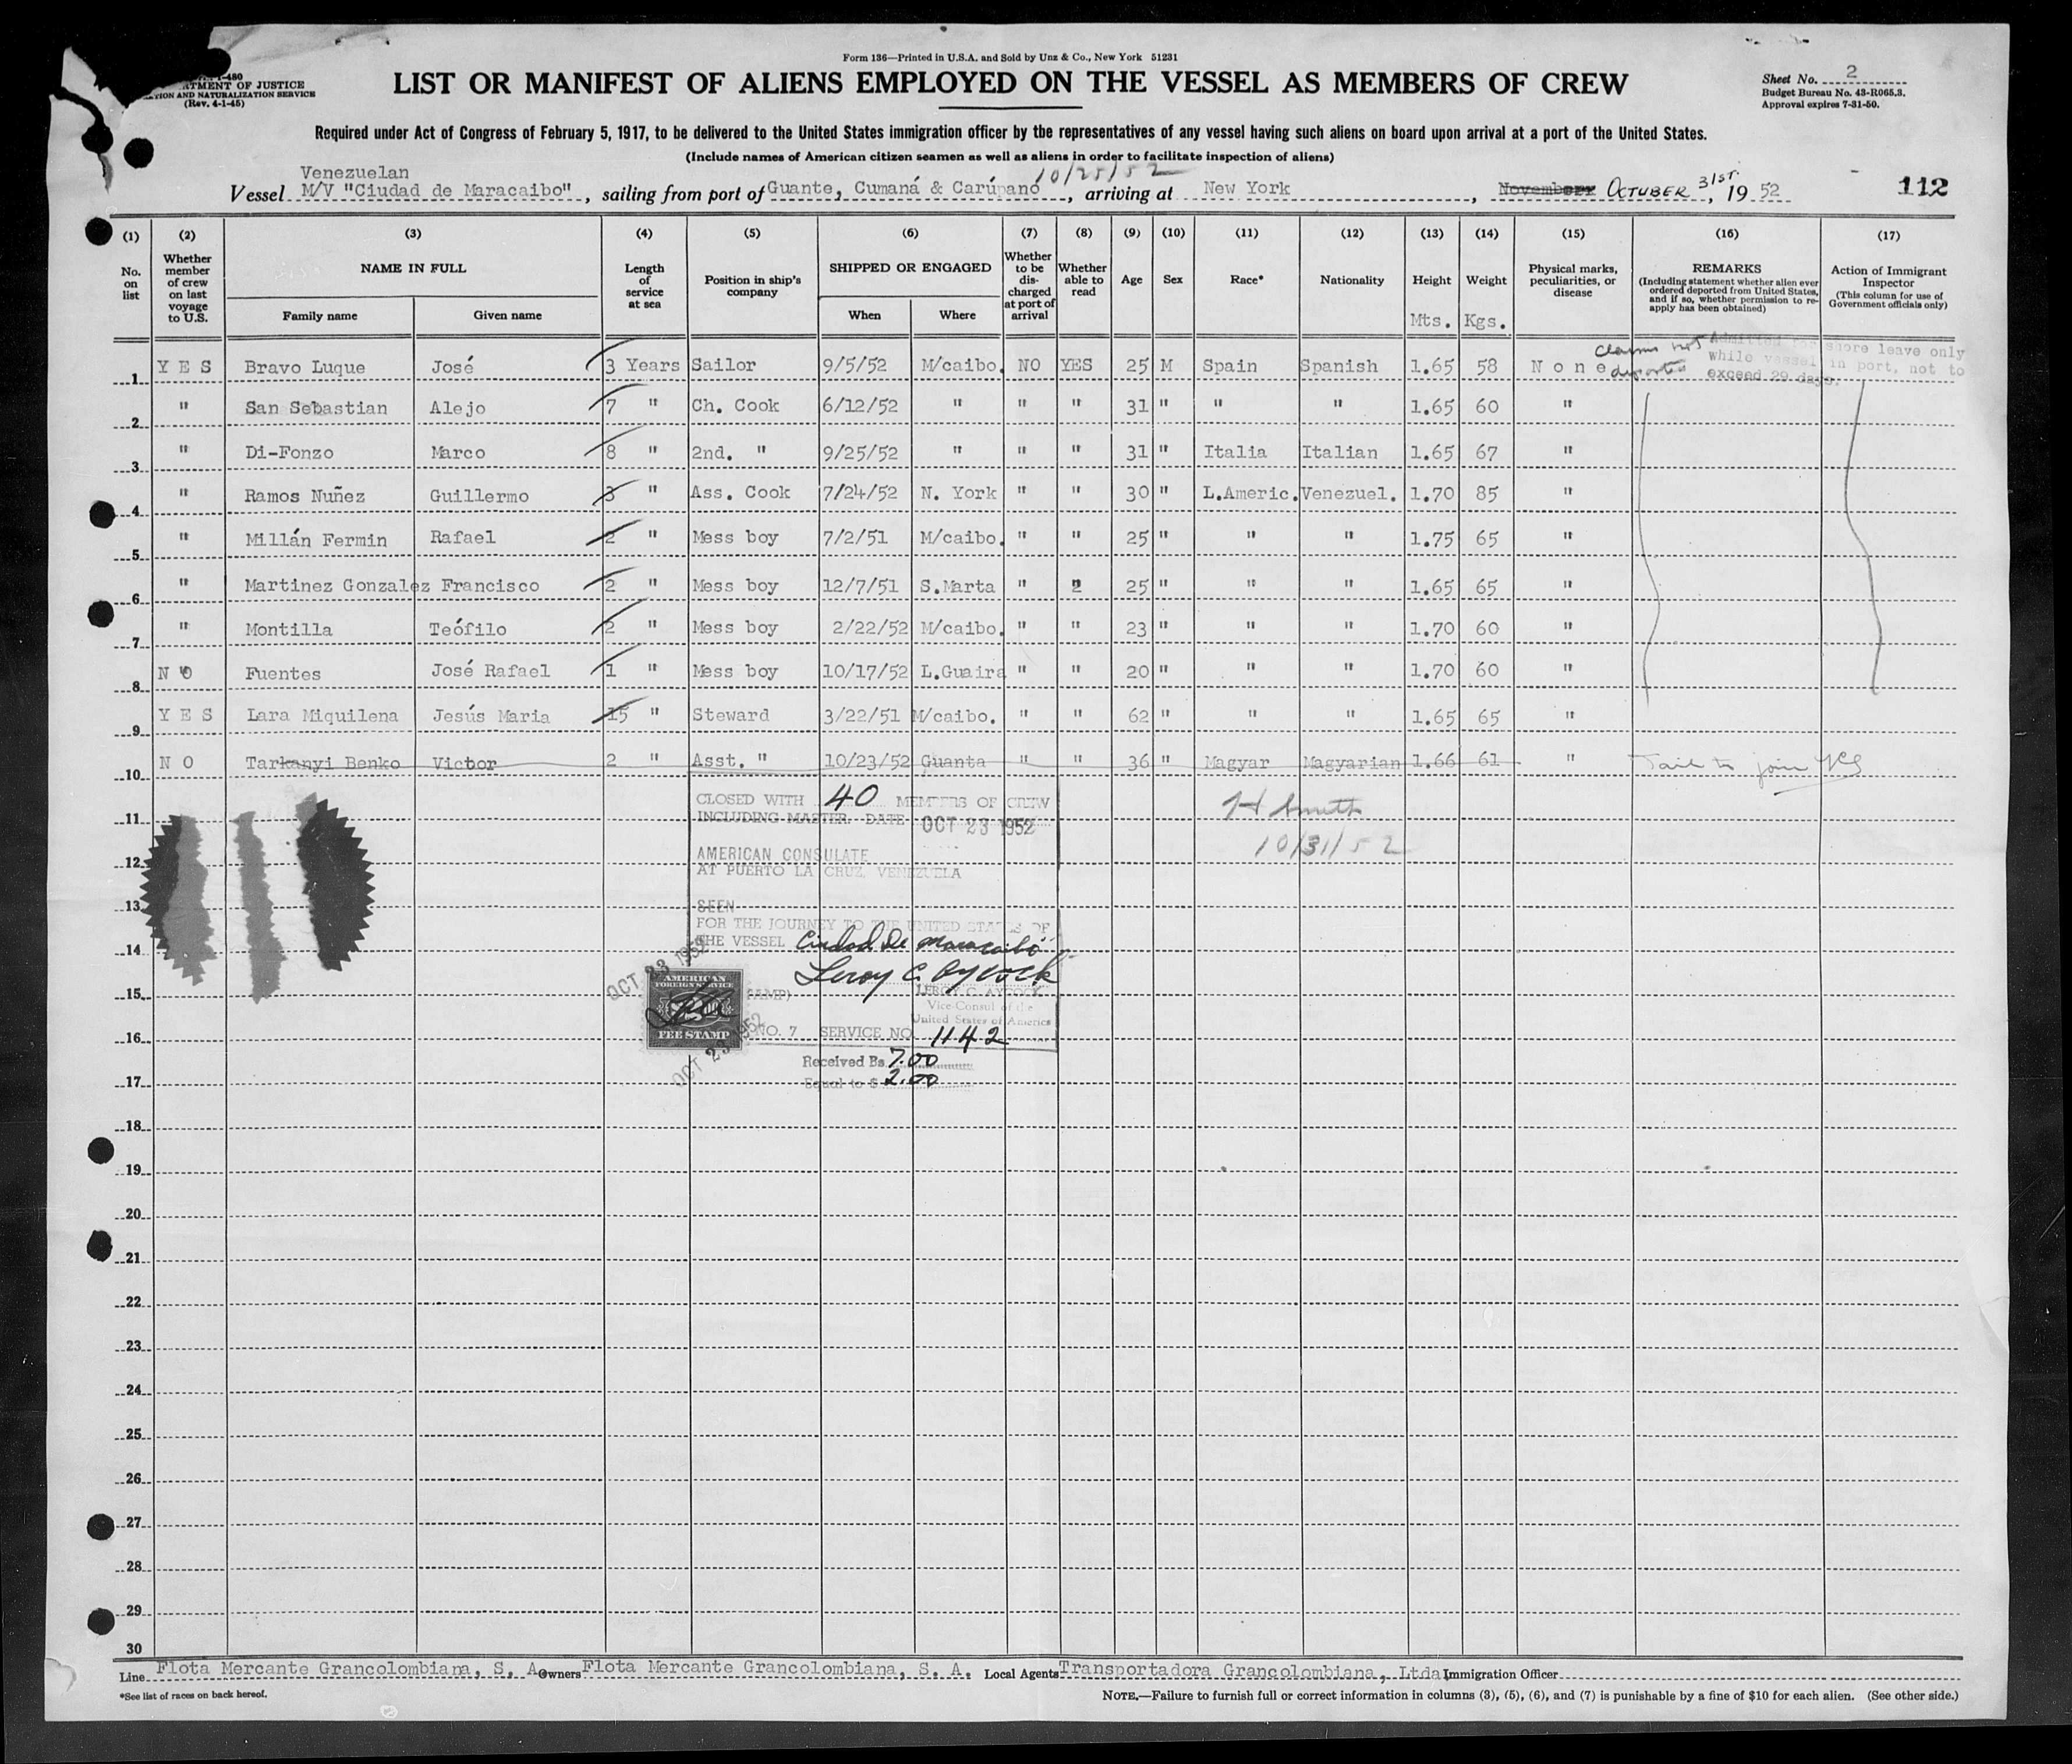 Form 136—Printed in U.S.A. and Sold by Unz & Co., New York 51231
I-480
DEPARTMENT OF JUSTICE
IMMIGRATION AND NATURALIZATION SERVICE
(Rev. 4-1-45)
LIST OR MANIFEST OF ALIENS EMPLOYED ON THE VESSEL AS MEMBERS OF CREW
Sheet No. 2
Budget Bureau No. 43-R065.3.
Approval expires 7-31-50.
Required under Act of Congress of February 5, 1917, to be delivered to the United States immigration officer by the representatives of any vessel having such aliens on board upon arrival at a port of the United States.
(Include names of American citizen seamen as well as aliens in order to facilitate inspection of aliens)
Venezuelan 10/25/52
Vessel M/V "Ciudad de Maracaibo", sailing from port of Guante, Cumaná & Carúpano, arriving at New York, November OCTUBER 31ST., 19 52 112
(1) (2) (3) (4) (5) (6) (7) (8) (9) (10) (11) (12) (13) (14) (15) (16) (17)
No. on list
Whether member of crew on last voyage to U.S.
NAME IN FULL
Family name Given name
Length of service at sea
Position in ship's company
SHIPPED OR ENGAGED
When Where
Whether to be discharged at port of arrival
Whether able to read
Age
Sex
Race*
Nationality
Height Mts.
Weight Kgs.
Physical marks, peculiarities, or disease
REMARKS
(Including statement whether alien ever ordered deported from United States, and if so, whether permission to reapply has been obtained)
Action of Immigrant Inspector
(This column for use of Government officials only)
1 YES Bravo Luque José 3 Years Sailor 9/5/52 M/caibo. NO YES 25 M Spain Spanish 1.65 58 None
claims not deported
Admitted for shore leave only
while vessel in port, not to
exceed 29 days.
2 " San Sebastian Alejo 7 " Ch. Cook 6/12/52 " " " 31 " " " 1.65 60 "
3 " Di-Fonzo Marco 8 " 2nd. " 9/25/52 " " " 31 " Italia Italian 1.65 67 "
4 " Ramos Nuñez Guillermo 3 " Ass. Cook 7/24/52 N. York " " 30 " L.Americ. Venezuel. 1.70 85 "
5 " Millán Fermin Rafael 2 " Mess boy 7/2/51 M/caibo. " " 25 " " " 1.75 65 "
6 " Martinez Gonzalez Francisco 2 " Mess boy 12/7/51 S.Marta " " 25 " " " 1.65 65 "
7 " Montilla Teófilo 2 " Mess boy 2/22/52 M/caibo. " " 23 " " " 1.70 60 "
8 NO Fuentes José Rafael 1 " Mess boy 10/17/52 L.Guaira " " 20 " " " 1.70 60 "
9 YES Lara Miquilena Jesús Maria 15 " Steward 3/22/51 M/caibo. " " 62 " " " 1.65 65 "
10 NO Tarkanyi Benko Victor 2 " Asst. " 10/23/52 Guanta " " 36 " Magyar Magyarian 1.66 61 " Fail to join
11
12
13
14
15
16
17
18
19
20
21
22
23
24
25
26
27
28
29
30
CLOSED WITH 40 MEMBERS OF CREW
INCLUDING MASTER. DATE OCT 23 1952
AMERICAN CONSULATE
AT PUERTO LA CRUZ, VENEZUELA
SEEN
FOR THE JOURNEY TO THE UNITED STATES OF
THE VESSEL Ciudad de Maracaibo
Leroy C. Aycock
LEROY C. AYCOCK
Vice-Consul of the
United States of America
NO. 7 SERVICE NO. 1142
Received Bs. 7.00
Equal to $ 2.00
OCT 23 1952
AMERICAN
FOREIGN SERVICE
FEE STAMP
OCT 23 1952
H Smith
10/31/52
Line Flota Mercante Grancolombiana, S. A. Owners Flota Mercante Grancolombiana, S. A. Local Agents Transportadora Grancolombiana, Ltda. Immigration Officer
*See list of races on back hereof.
NOTE.—Failure to furnish full or correct information in columns (3), (5), (6), and (7) is punishable by a fine of $10 for each alien. (See other side.)